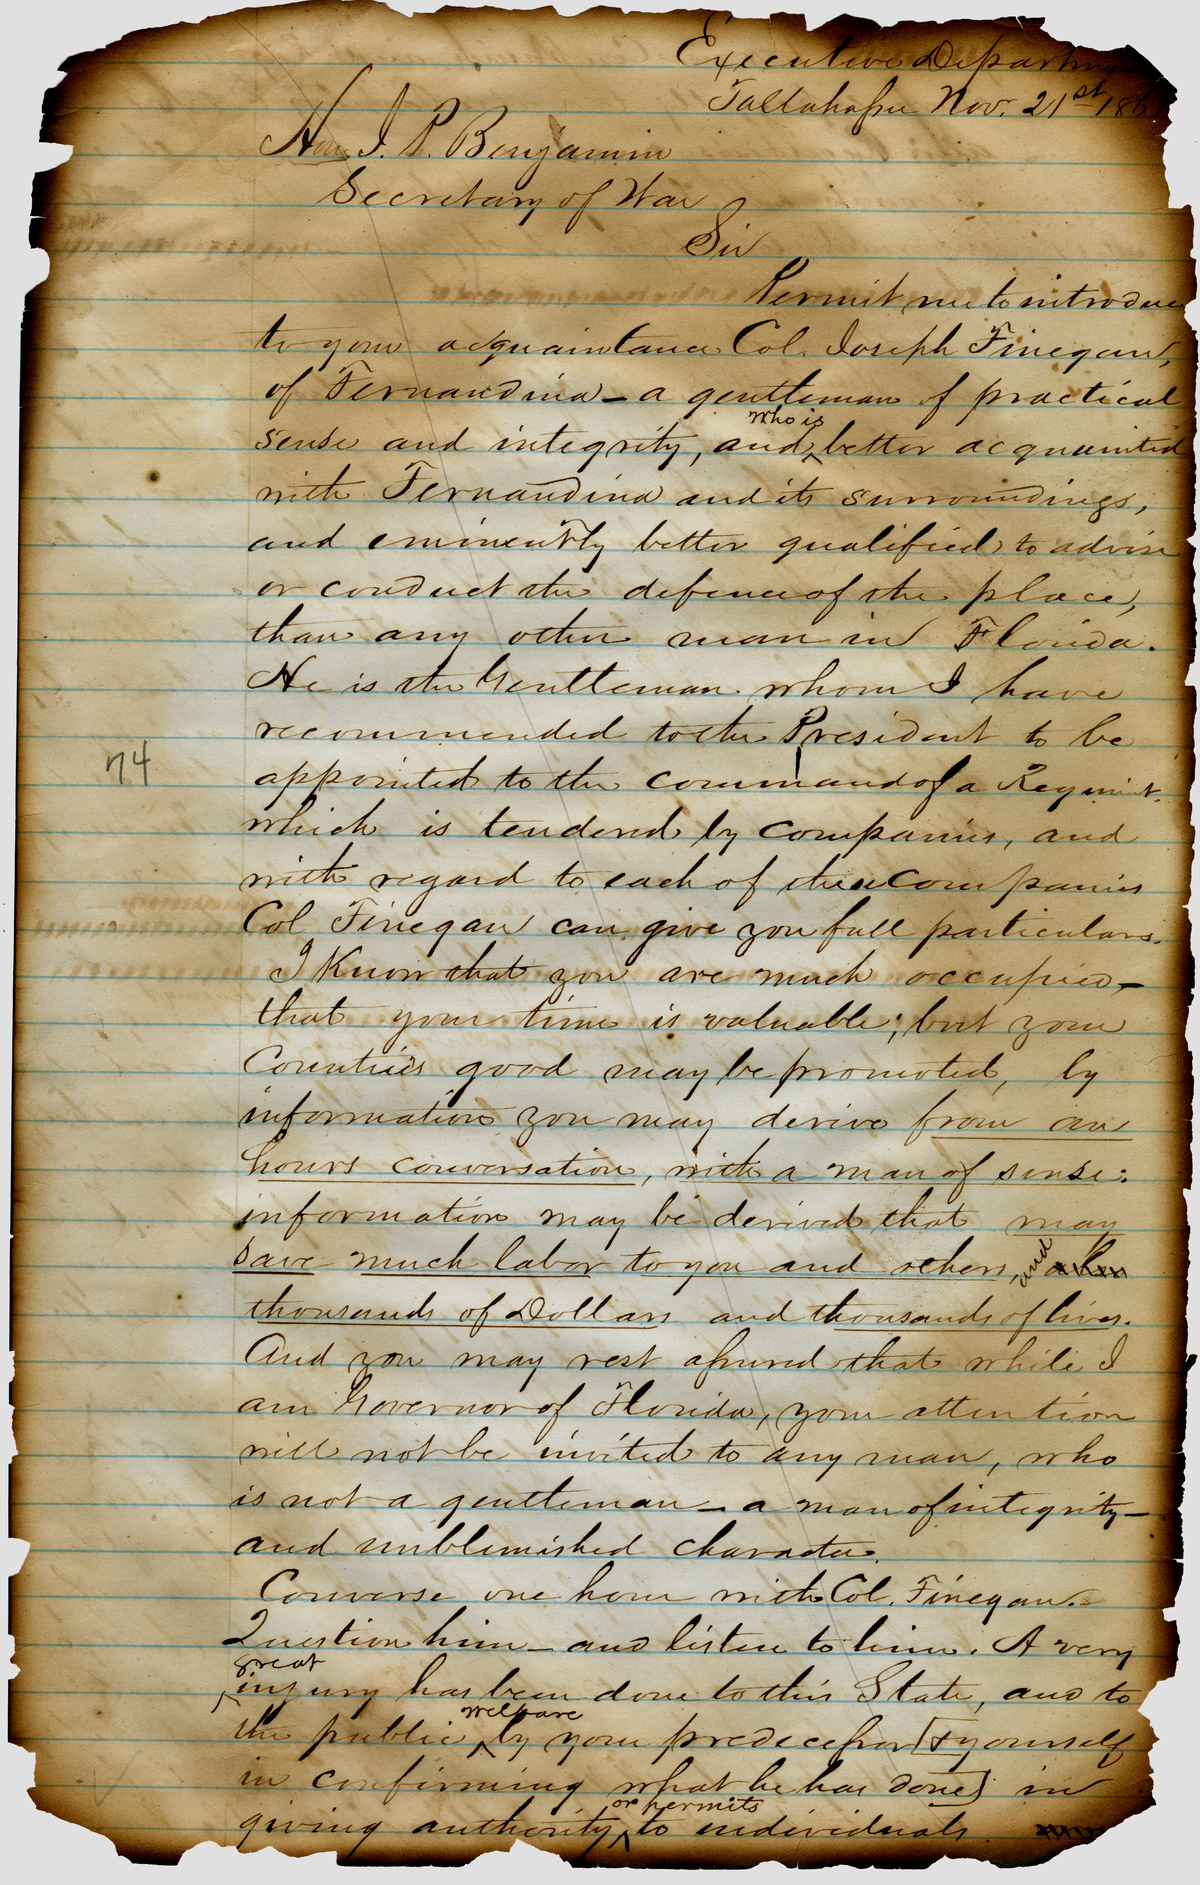 Executive Departm
Tallahassee Nov. 21st 186
Hon J. P. Benjamin
Secretary of War
Sir
Permit me to introduce
to your acquaintance Col. Joseph Finegan,
of Fernandina – a gentleman of practical
who is
sense and integrity, and ‸ better acquainted
with Fernandina and its surroundings,
and eminently better qualified to advise
or conduct the defence of the place,
than any other man in Florida.
He is the Gentleman whom I have
recommended to the President to be
appointed to the command of a Regiment.
which is tendered by companies, and
74
with regard to each of these Companies
Col Finegan can give you full particulars.
I Know that you are much occupied –
that your time is valuable; but your
Countries good may be promoted, by
information you may derive from an
hours conversation, with a man of sense:
information may be derived that may
save much labor to you and others, and
thousands of Dollars and thousands of lives.
And you may rest assured that while I
am Governor of Florida, your attention
will not be invited to any man, who
is not a gentleman – a man of integrity –
and unblemished character.
Converse one hour with Col. Finegan.
Question him – and listen to him. A very
great
‸ injury has been done to this State, and to
welfare
the public ‸ by your predecessor [& yourself
in confirming what he has done] in
or permits
giving authority ‸ to individuals.